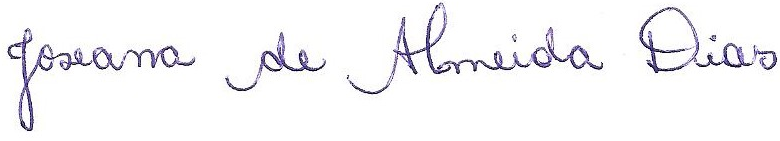 Joseana de Almeida Dias